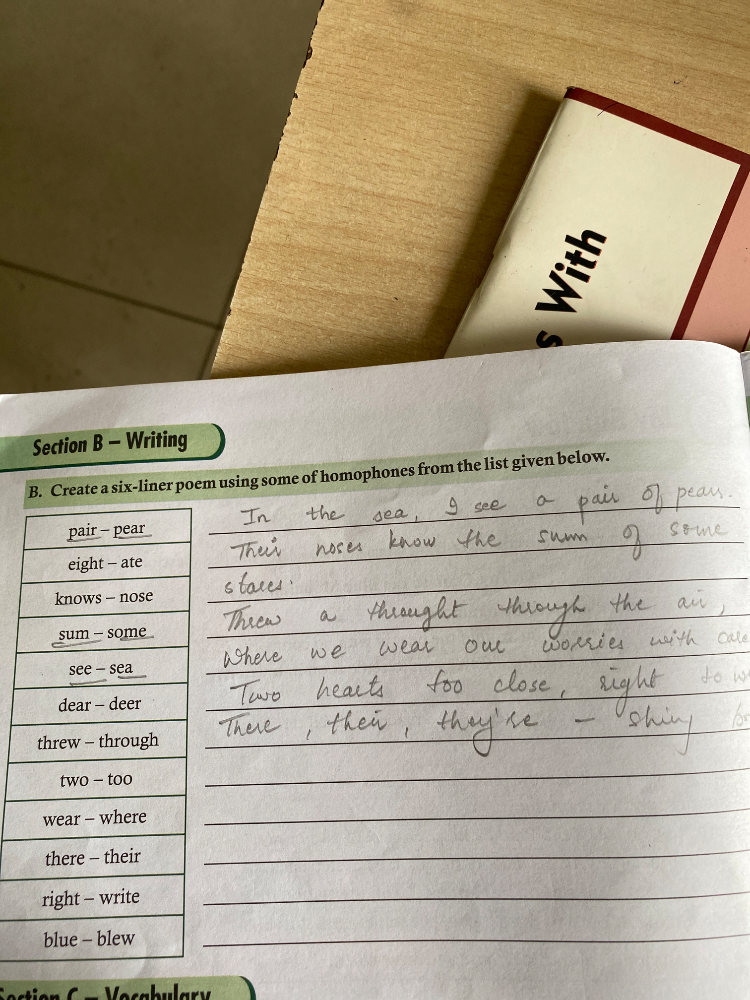 s With
Section B – Writing
B. Create a six-liner poem using some of homophones from the list given below.
pair – pear
eight – ate
knows – nose
sum – some
see – sea
dear – deer
threw – through
two – too
wear – where
there – their
right – write
blue – blew
In the sea, I see a pair of pears.
Their noses know the sum of some
stares.
Threw a throught through the air,
Where we wear our worries with care
Two hearts too close, right to
There, their, they're – shiny
Section C – Vocabulary